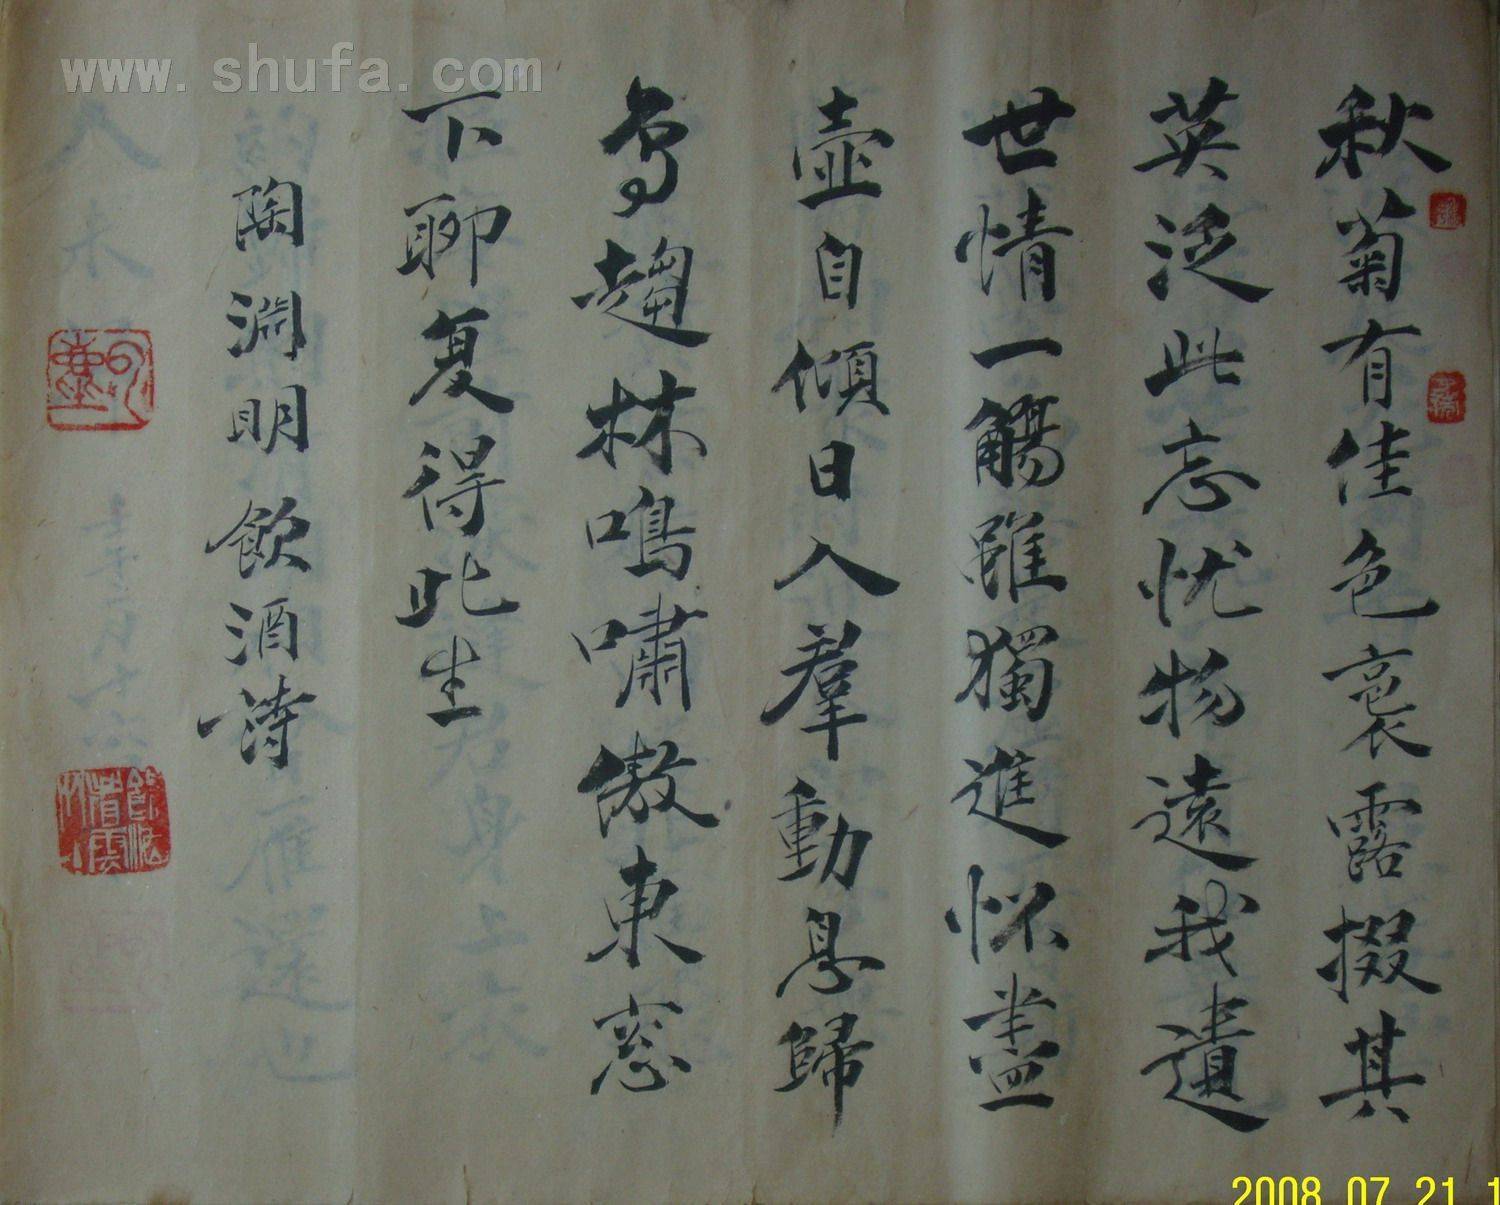 秋菊有佳色裛露掇其
英泛此忘忧物遠我遺
世情一觴雖獨進怀盡
壺自傾日入羣動息歸
鳥趨林鳴嘯傲東窓
下聊复得此生
陶淵明飲酒詩
www.shufa.com
2008 07 21 1